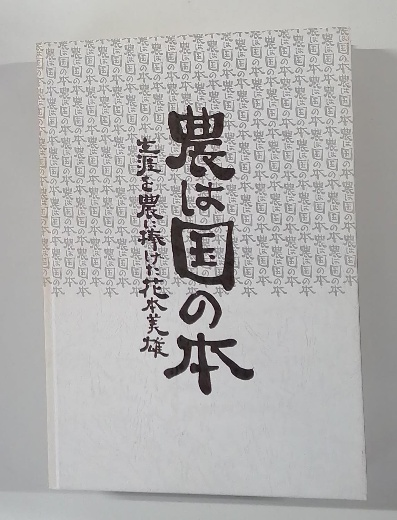 農は国の本
生涯を農に捧げた花本美雄